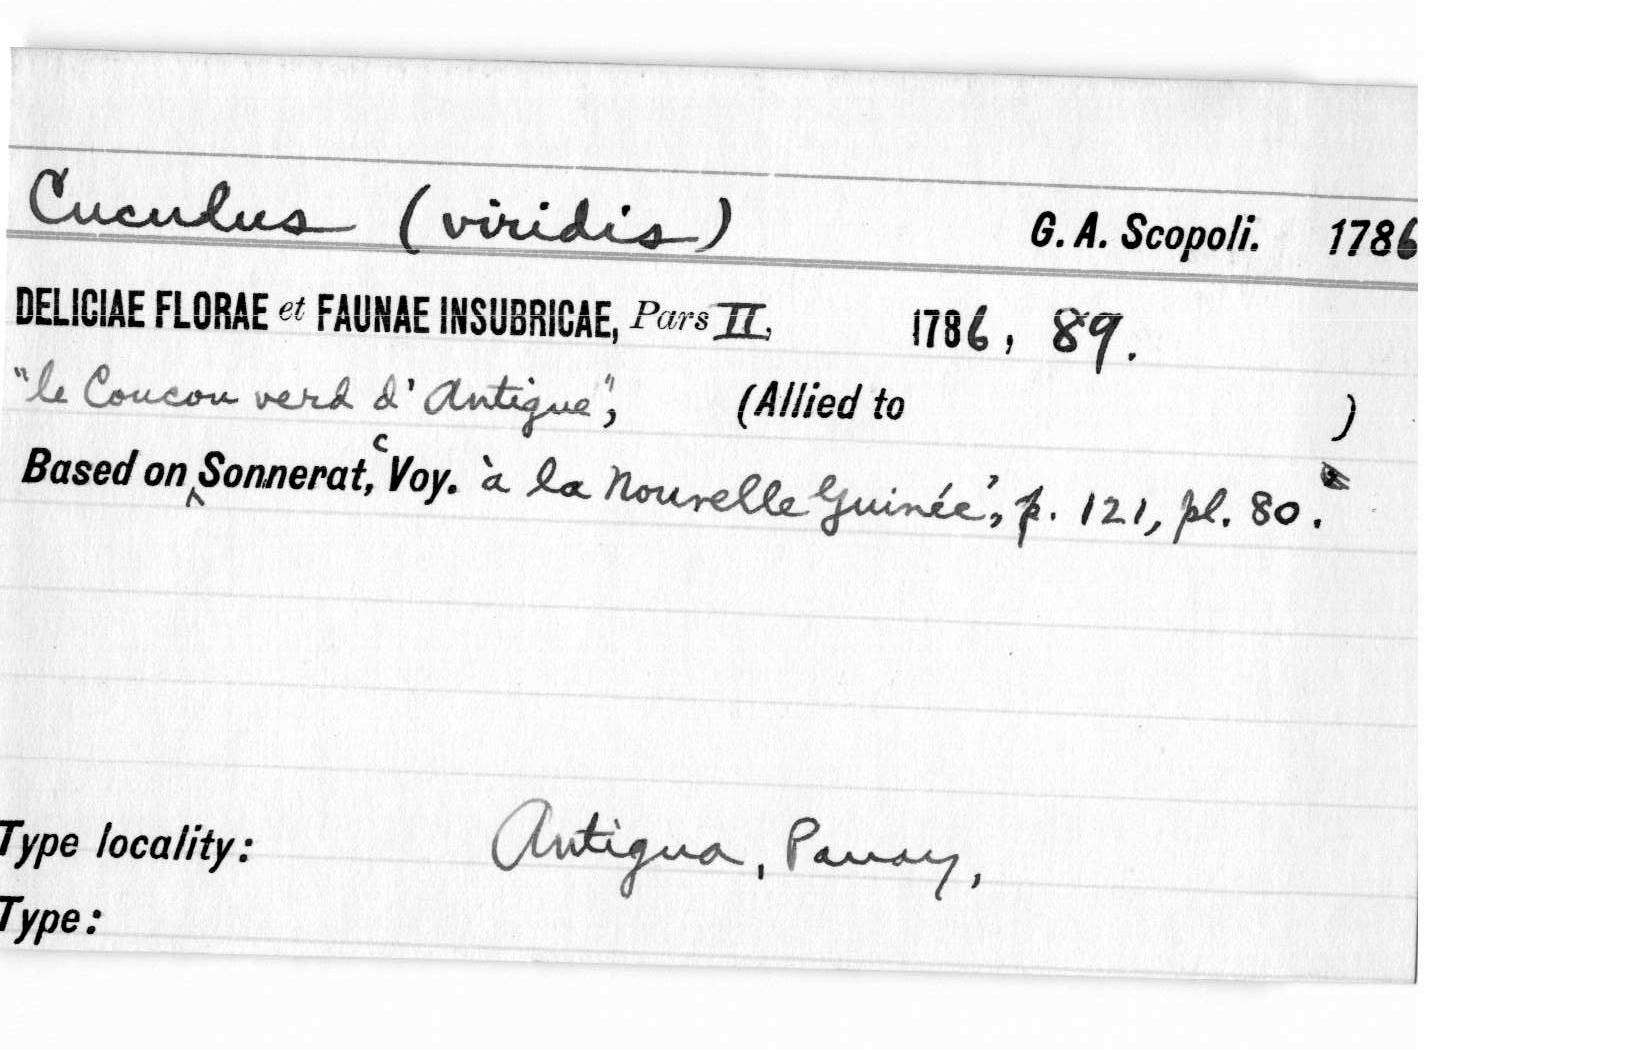 Cuculus (viridis) G. A. Scopoli. 1786
DELICIAE FLORAE et FAUNAE INSUBRICAE, Pars II, 1786, 89.
"le Coucou verd d'Antigue", (Allied to )
Based on Sonnerat, ‘Voy. à la Nouvelle Guinée’, p. 121, pl. 80.
Type locality: Antigua, Panay,
Type: